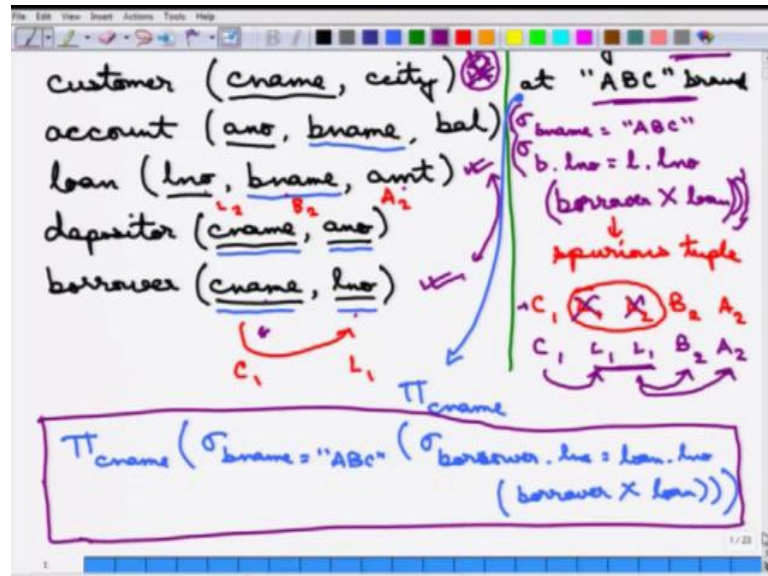 File Edit View Insert Actions Tools Help
customer (cname, ccity)
account (ano, bname, bal)
loan (lno, bname, amt)
L2 B2 A2
depositor (cname, ano)
borrower (cname, lno)
C1 L1
at "ABC" branch
σ bname = "ABC"
σ b.lno = l.lno
(borrower X loan)))
spurious tuple
C1 L1 L2 B2 A2
C1 L1 L1 B2 A2
Π cname
Π cname (σ bname = "ABC" (σ borrower.lno = loan.lno
(borrower X loan)))
1 / 23